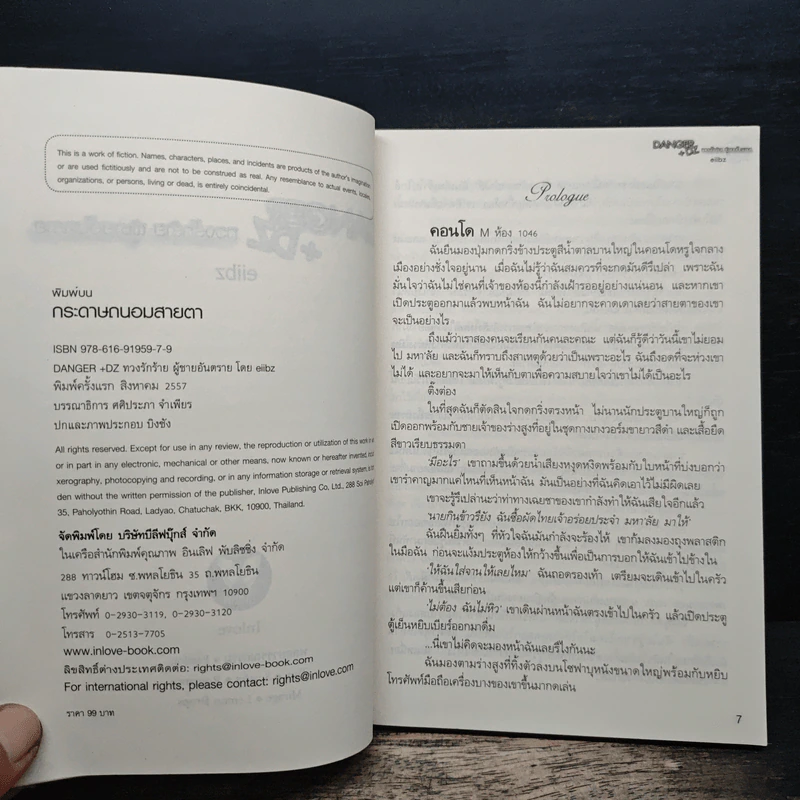 This is a work of fiction. Names, characters, places, and incidents are products of the author's imagination
or are used fictitiously and are not to be construed as real. Any resemblance to actual events, locales,
organizations, or persons, living or dead, is entirely coincidental.
พิมพ์บน
กระดาษถนอมสายตา
ISBN 978-616-91959-7-9
DANGER +DZ ทวงรักร้าย ผู้ชายอันตราย โดย eiibz
พิมพ์ครั้งแรก สิงหาคม 2557
บรรณาธิการ ศศิประภา จำเพียร
ปกและภาพประกอบ บิงซัง
All rights reserved. Except for use in any review, the reproduction or utilization of this work in
or in part in any electronic, mechanical or other means, now known or hereafter invented,
xerography, photocopying and recording, or in any information storage or retrieval system, is
den without the written permission of the publisher, Inlove Publishing Co., Ltd., 288 Soi
35, Paholyothin Road, Ladyao, Chatuchak, BKK, 10900, Thailand.
จัดพิมพ์โดย บริษัทบีลีฟบุ๊กส์ จำกัด
ในเครือสำนักพิมพ์คุณภาพ อินเลิฟ พับลิชชิ่ง จำกัด
288 ทาวน์โฮม ซ.พหลโยธิน 35 ถ.พหลโยธิน
แขวงลาดยาว เขตจตุจักร กรุงเทพฯ 10900
โทรศัพท์ 0-2930-3119, 0-2930-3120
โทรสาร 0-2513-7705
www.inlove-book.com
ลิขสิทธิ์ต่างประเทศติดต่อ: rights@inlove-book.com
For international rights, please contact: rights@inlove.com
ราคา 99 บาท
DANGER +DZ ทวงรักร้าย ผู้ชายอันตราย
eiibz
Prologue
คอนโด M ห้อง 1046
ฉันยืนมองปุ่มกดกริ่งข้างประตูสีน้ำตาลบานใหญ่ในคอนโดหรูใจกลาง
เมืองอย่างชั่งใจอยู่นาน เมื่อฉันไม่รู้ว่าฉันสมควรที่จะกดมันดีรึเปล่า เพราะฉัน
มั่นใจว่าฉันไม่ใช่คนที่เจ้าของห้องนี้กำลังเฝ้ารออยู่อย่างแน่นอน และหากเขา
เปิดประตูออกมาแล้วพบหน้าฉัน ฉันไม่อยากจะคาดเดาเลยว่าสายตาของเขา
จะเป็นอย่างไร
ถึงแม้ว่าเราสองคนจะเรียนกันคนละคณะ แต่ฉันก็รู้ดีว่าวันนี้เขาไม่ยอม
ไป มหา'ลัย และฉันก็ทราบถึงสาเหตุด้วยว่าเป็นเพราะอะไร ฉันถึงอดที่จะห่วงเขา
ไม่ได้ และอยากจะมาให้เห็นกับตาเพื่อความสบายใจว่าเขาไม่ได้เป็นอะไร
ติ๊งต่อง
ในที่สุดฉันก็ตัดสินใจกดกริ่งตรงหน้า ไม่นานนักประตูบานใหญ่ก็ถูก
เปิดออกพร้อมกับชายเจ้าของร่างสูงที่อยู่ในชุดกางเกงวอร์มขายาวสีดำ และเสื้อยืด
สีขาวเรียบธรรมดา
'มีอะไร' เขาถามขึ้นด้วยน้ำเสียงหงุดหงิดพร้อมกับใบหน้าที่บ่งบอกว่า
เขารำคาญมากแค่ไหนที่เห็นหน้าฉัน มันเป็นอย่างที่ฉันคิดเอาไว้ไม่มีผิดเลย
เขาจะรู้รึเปล่านะว่าท่าทางเฉยชาของเขากำลังทำให้ฉันเสียใจอีกแล้ว
'นายกินข้าวรึยัง ฉันซื้อผัดไทยเจ้าอร่อยประจำ มหา'ลัย มาให้'
ฉันฝืนยิ้มทั้งๆ ที่หัวใจฉันมันกำลังจะร้องไห้ เขาก้มลงมองถุงพลาสติก
ในมือฉัน ก่อนจะแง้มประตูห้องให้กว้างขึ้นเพื่อเป็นการบอกให้ฉันเข้าไปข้างใน
'ให้ฉันใส่จานให้เลยไหม' ฉันถอดรองเท้า เตรียมจะเดินเข้าไปในครัว
แต่เขาก็ค้านขึ้นเสียก่อน
'ไม่ต้อง ฉันไม่หิว' เขาเดินผ่านหน้าฉันตรงเข้าไปในครัว แล้วเปิดประตู
ตู้เย็นหยิบเบียร์ออกมาดื่ม
...นี่เขาไม่คิดจะมองหน้าฉันเลยรึไงกันนะ
ฉันมองตามร่างสูงที่ทิ้งตัวลงบนโซฟาบุหนังขนาดใหญ่พร้อมกับหยิบ
โทรศัพท์มือถือเครื่องบางของเขาขึ้นมากดเล่น
7